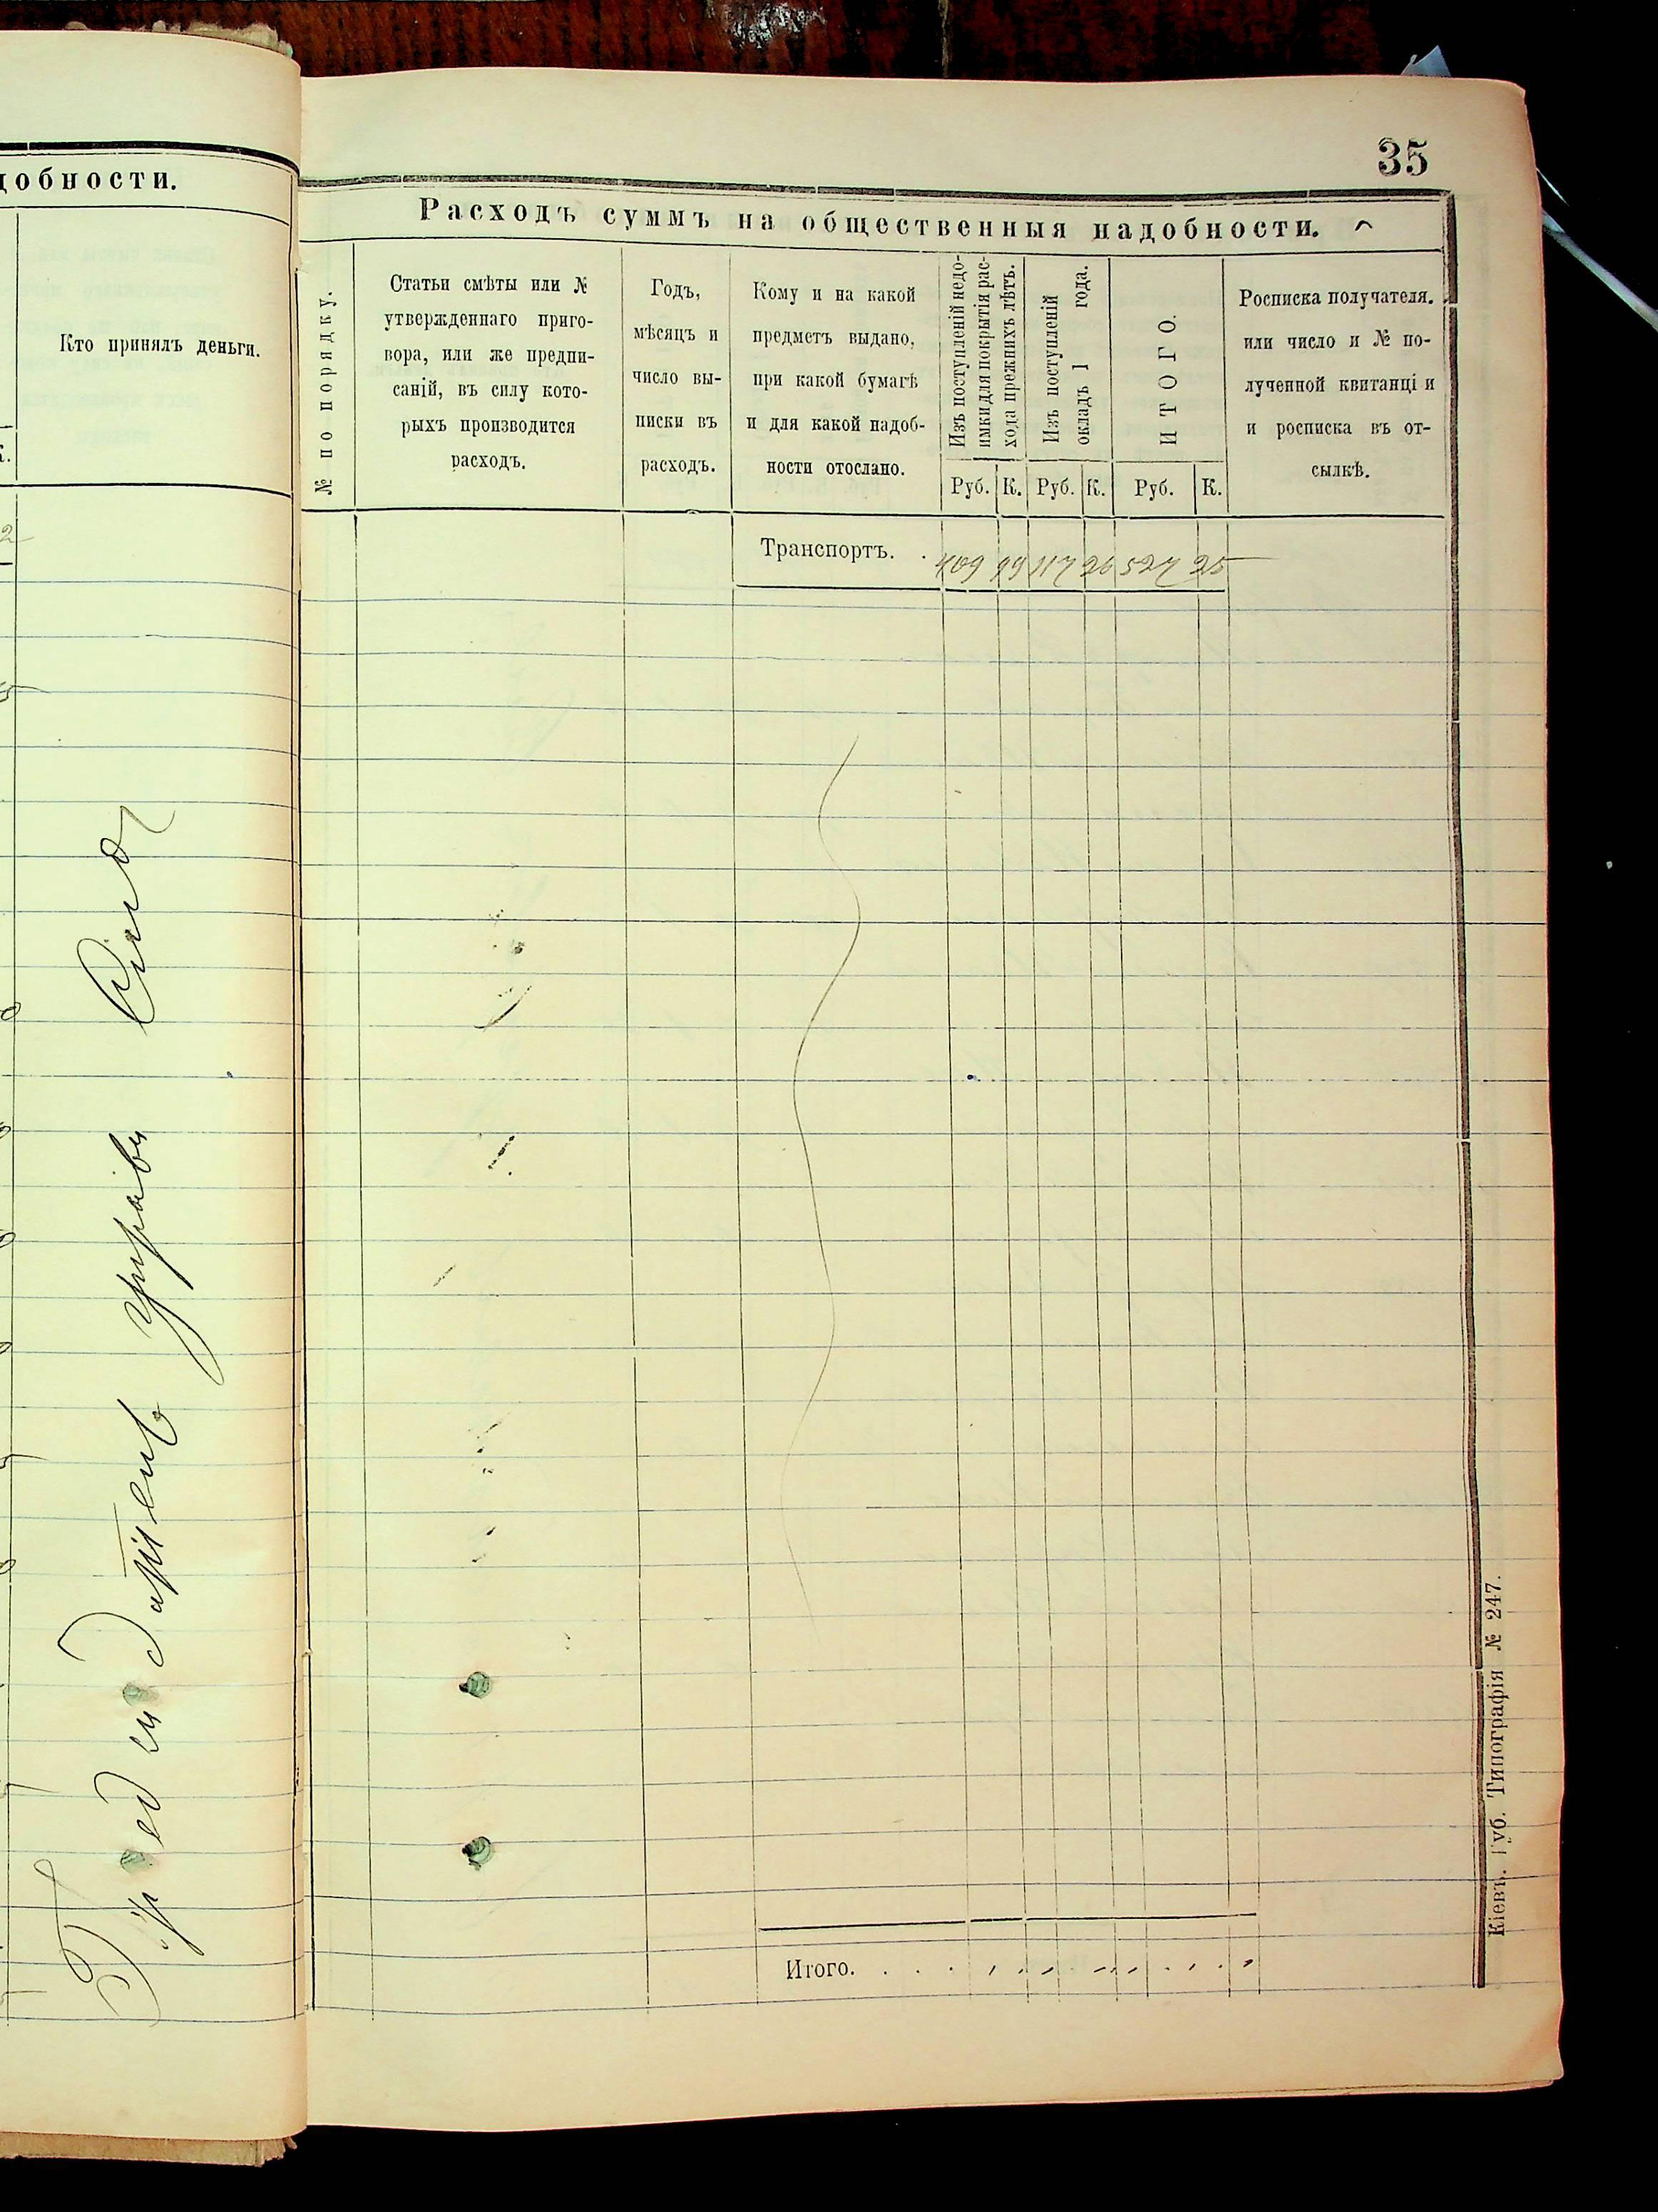 добности.
Кто принялъ деньги.
К.
35
Расходъ суммъ на общественныя надобности.
№ по порядку.
Статьи смѣты или №
утвержденнаго приго-
вора, или же предпи-
саній, въ силу кото-
рыхъ производится
расходъ.
Годъ,
мѣсяцъ и
число вы-
писки въ
расходъ.
Кому и на какой
предметъ выдано,
при какой бумагѣ
и для какой надоб-
ности отослано.
Изъ поступленій недо-
имки для покрытія рас-
хода прежнихъ лѣтъ.
Изъ поступленій
окладъ 1 года.
ИТОГО.
Росписка получателя.
или число и № по-
лученной квитанціи
и росписка въ от-
сылкѣ.
Руб. К. Руб. К. Руб. К.
Транспортъ. . 409 99 117 26 527 25
Итого.
Кіевъ. Губ. Типографія № 247.